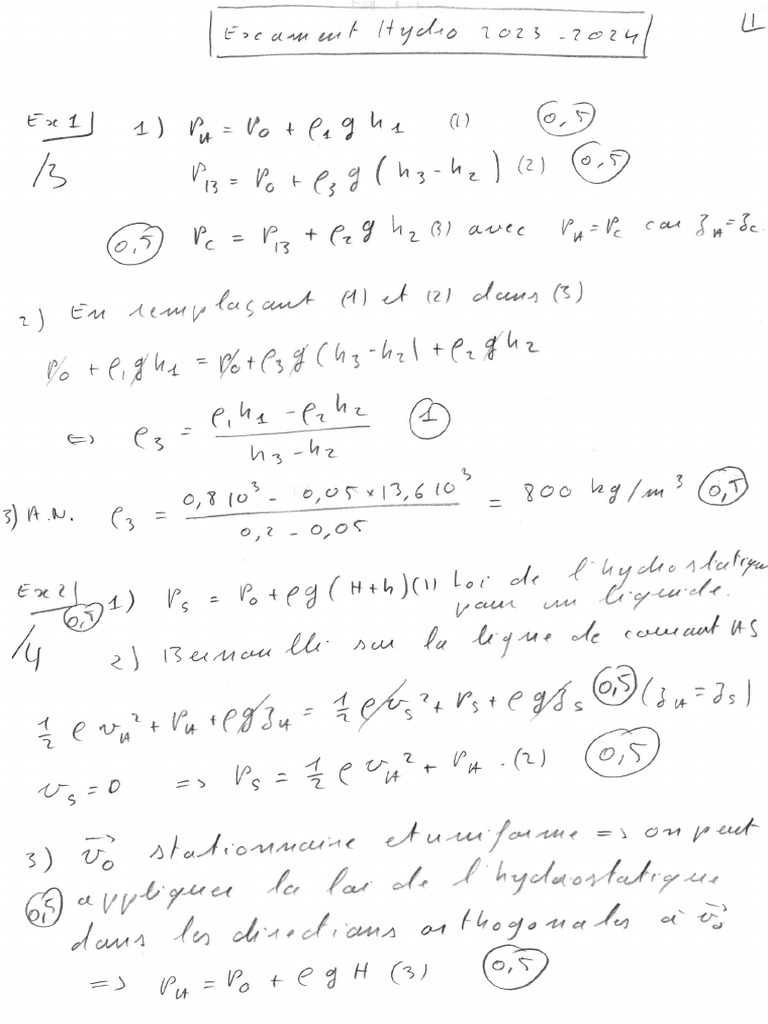 Exament Hydro 2023-2024
1
Ex1 1) P_A = P_0 + ρ_1 g h_1 (1) 0,5
/3 P_B = P_0 + ρ_3 g (h_3 - h_2) (2) 0,5
0,5 P_C = P_B + ρ_2 g h_2 (3) avec P_A = P_C car z_A = z_C.
2) En remplaçant (1) et (2) dans (3)
P_0 + ρ_1 g h_1 = P_0 + ρ_3 g (h_3 - h_2) + ρ_2 g h_2
<=> ρ_3 = (ρ_1 h_1 - ρ_2 h_2) / (h_3 - h_2) 1
3) A.N. ρ_3 = (0,8 10^3 - 0,05 × 13,6 10^3) / (0,2 - 0,05) = 800 kg/m^3 0,5
Ex2 0,5 1) P_S = P_0 + ρg (H + h) (1) Loi de l'hydrostatique
pour un liquide.
/4 2) Bernoulli sur la ligne de courant AS
1/2 ρ v_A^2 + P_A + ρ g z_A = 1/2 ρ v_S^2 + P_S + ρ g z_S 0,5 (z_A = z_S)
v_S = 0 => P_S = 1/2 ρ v_A^2 + P_A . (2) 0,5
3) v_0 stationnaire et uniforme => on peut
0,5 appliquer la loi de l'hydrostatique
dans les directions orthogonales à v_0
=> P_A = P_0 + ρ g H (3) 0,5